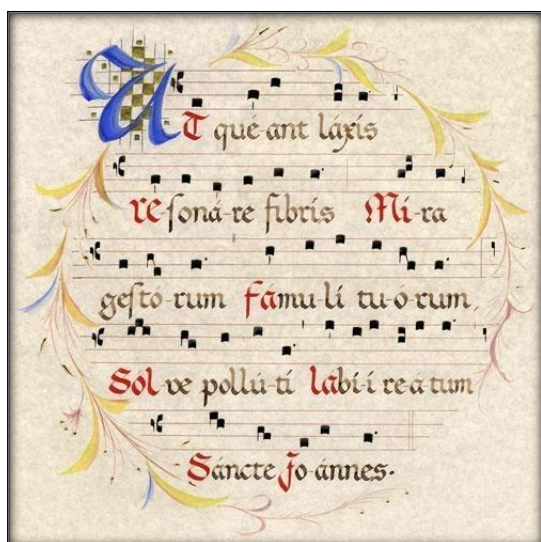 UT qué-ant láxis
re-soná-re fibris Mi-ra
gestó-rum famu-lí tu-ó-rum,
Sol ve pollú-tí labí-i re-a tum
Sáncte Jo-ánnes.